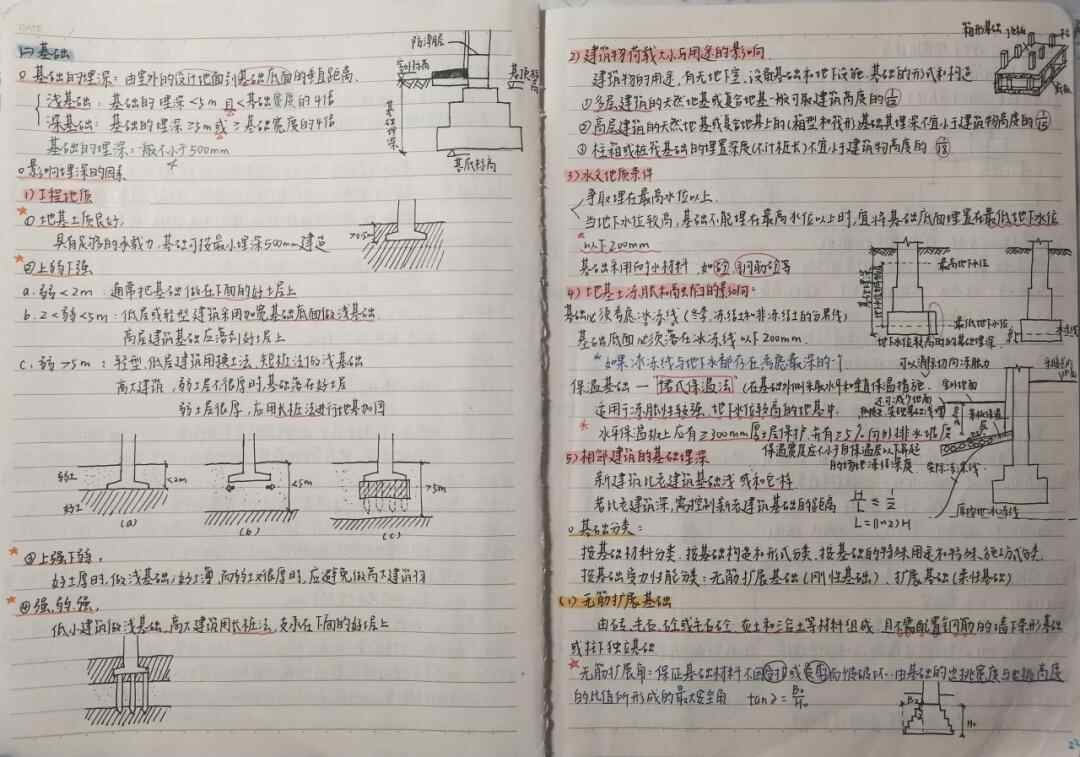 DATE
(一)基础
○ 基础的埋深：由室外的设计地面到基础底面的垂直距离.
浅基础：基础的埋深<5m 且<基础宽度的4倍
深基础：基础的埋深≥5m或≥基础宽度的4倍
基础的埋深一般不小于500mm
防潮层
室外标高
基顶标高
基础埋深
基底标高
○影响埋深的因素
1)工程地质
①地基土质良好，
具有足够的承载力，基础可按最小埋深500mm建造
>0.5m
②上弱下强
a.弱<2m：通常把基础做在下面的好土层上
b.2<弱<5m：低层或轻型建筑采用加宽基础底面做浅基础.
高层建筑基础应落到好土层上
c.弱>5m：轻型、低层建筑用换土法、短桩法的浅基础
高大建筑，弱土层不很厚时，基础落在好土层
弱土层很厚，应用长桩法进行地基加固
弱土
好土
<2m
<5m
>5m
(a)
(b)
(c)
③上强下弱，
好土厚时，做浅基础；好土薄，而弱土又很厚时，应避免做高大建筑物
④强，弱，强，
低小建筑做浅基础，高大建筑用长桩法，支承在下面的好土层上
箱形基础
顶板
柱
底板
2)建筑物荷载大小与用途的影响
建筑物的用途，有无地下室、设备基础和地下设施，基础的形式和构造
①多层建筑的天然地基或复合地基一般可取建筑高度的1/10
②高层建筑的天然地基或复合地基上的(箱型和筏形)基础其埋深不宜小于建筑物高度的1/15
③桩箱或桩筏基础的埋置深度(不计桩长)不宜小于建筑物高度的1/18
3)水文地质条件
争取埋在最高水位以上.
当地下水位较高，基础不能埋在最高水位以上时，宜将基础底面埋置在最低地下水位
以下200mm
基础采用耐水材料，如砼、钢筋砼等
最高地下水位
最低地下水位
地下水位较高时的基础埋深
冰冻线
4)地基土冻胀和高出后的影响：
基础必须考虑：冰冻线(冬季，冻结土和非冻结土的分界线)
基础底面必须落在冰冻线以下200mm.
*如果冰冻线与地下水都存在考虑最深的一个
保温基础 — "揉式保温法"(在基础外侧采取水平和垂直保温措施.
适用于冻胀性较强、地下水位较高的地基中.
*水平保温板上应有≥300mm厚土层保护，并有≥5%向外排水坡度
可以消除切向冻胀力
室外地面
保温宽度应不小于自保温层以下算起
的场地冻结深度
实际冻结线
原场地冰冻线
5)相邻建筑的基础埋深
新建筑比老建筑基础浅或和它一样
若比老建筑深，需控制新老建筑基础的距离
H/L ≤ 1/2
L=(1~2)H
○基础分类：
按基础材料分类、按基础构造和形式分类、按基础的特殊用途和特殊施工方式分类.
按基础受力性能分类：无筋扩展基础(刚性基础)、扩展基础(柔性基础)
(1)无筋扩展基础
由砖、毛石、砼或毛石砼、灰土和三合土等材料组成，且不需配置钢筋的墙下条形基础
或柱下独立基础
无筋扩展角：保证基础材料不因受拉或受剪而被破坏，由基础的出挑宽度与出挑高度
的比值所形成的最大安全角 tanα=B₂/H₀
B₂
H₀